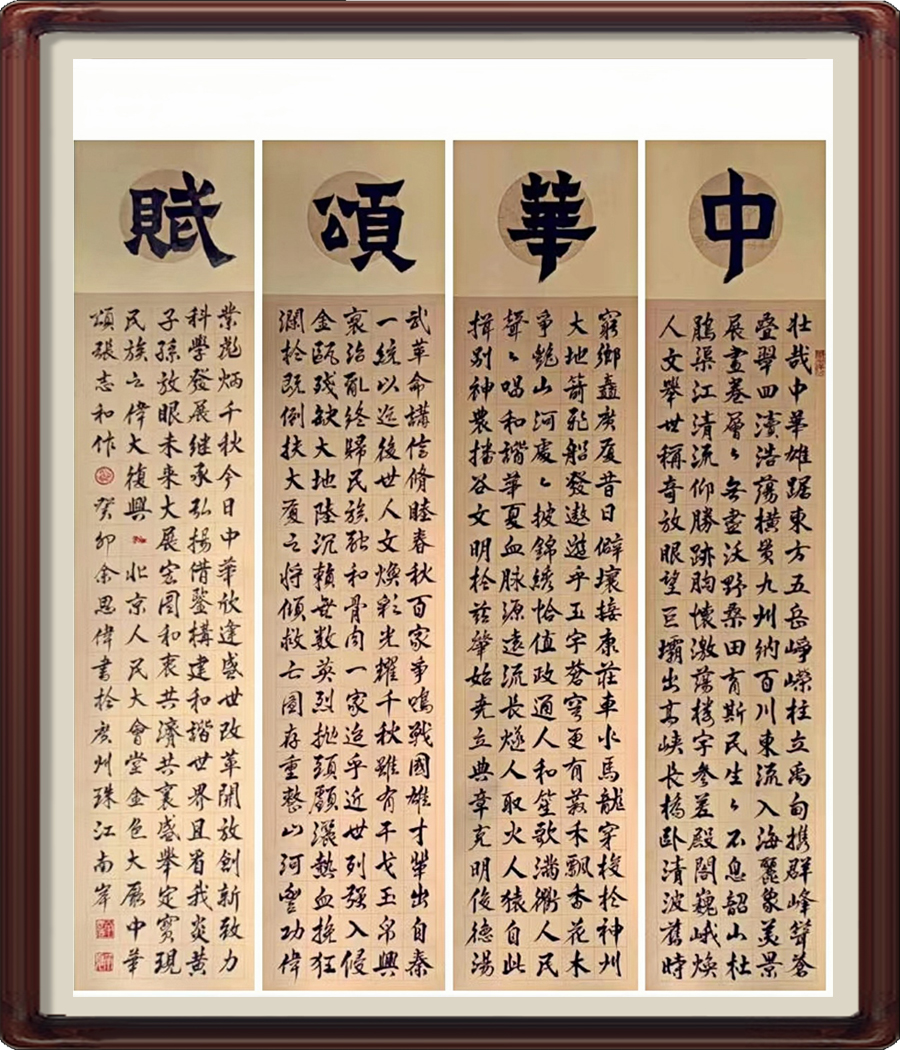 中華頌賦
壮哉中華雄踞東方五岳崢嶸柱立禹甸携群峰聳蒼
疊翠四瀆浩蕩横貫九州納百川東流入海麗象美景
展畫卷層々無盡沃野桑田育斯民生々不息韶山杜
鵑渠江清流仰勝跡胸懷激蕩樓宇參差殿閣巍峨焕
人文舉世稱奇放眼望巨壩出高峡長橋卧清波舊時
窮鄉矗廣厦昔日僻壤接康莊車水馬龍穿梭於神州
大地箭飛船發遨遊乎玉宇蒼穹更有菽禾飄香花木
争艷山河處々披錦綉恰值政通人和笙歌满衢人民
聲々唱和諧華夏血脉源遠流長燧人取火人猿自此
揖别神農播谷文明於兹肇始堯立典章克明俊德湯
武革命講信脩睦春秋百家争鳴戰國雄才輩出自秦
一統以迄後世人文焕彩光耀千秋雖有干戈玉帛興
衰治亂终歸民族融和骨肉一家迨乎近世列强入侵
金甌残缺大地陸沉賴無數英烈抛頭顱灑熱血挽狂
瀾於既倒扶大厦之将傾救亡圖存重整山河豐功偉
業彪炳千秋今日中華欣逢盛世改革開放創新致力
科學發展继承弘揚借鑒構建和諧世界且看我炎黄
子孫放眼未来大展宏图和衷共濟共襄盛舉定實現
民族之偉大復興 北京人民大會堂金色大廳中華
頌張志和作 癸卯余思偉書於廣州珠江南岸